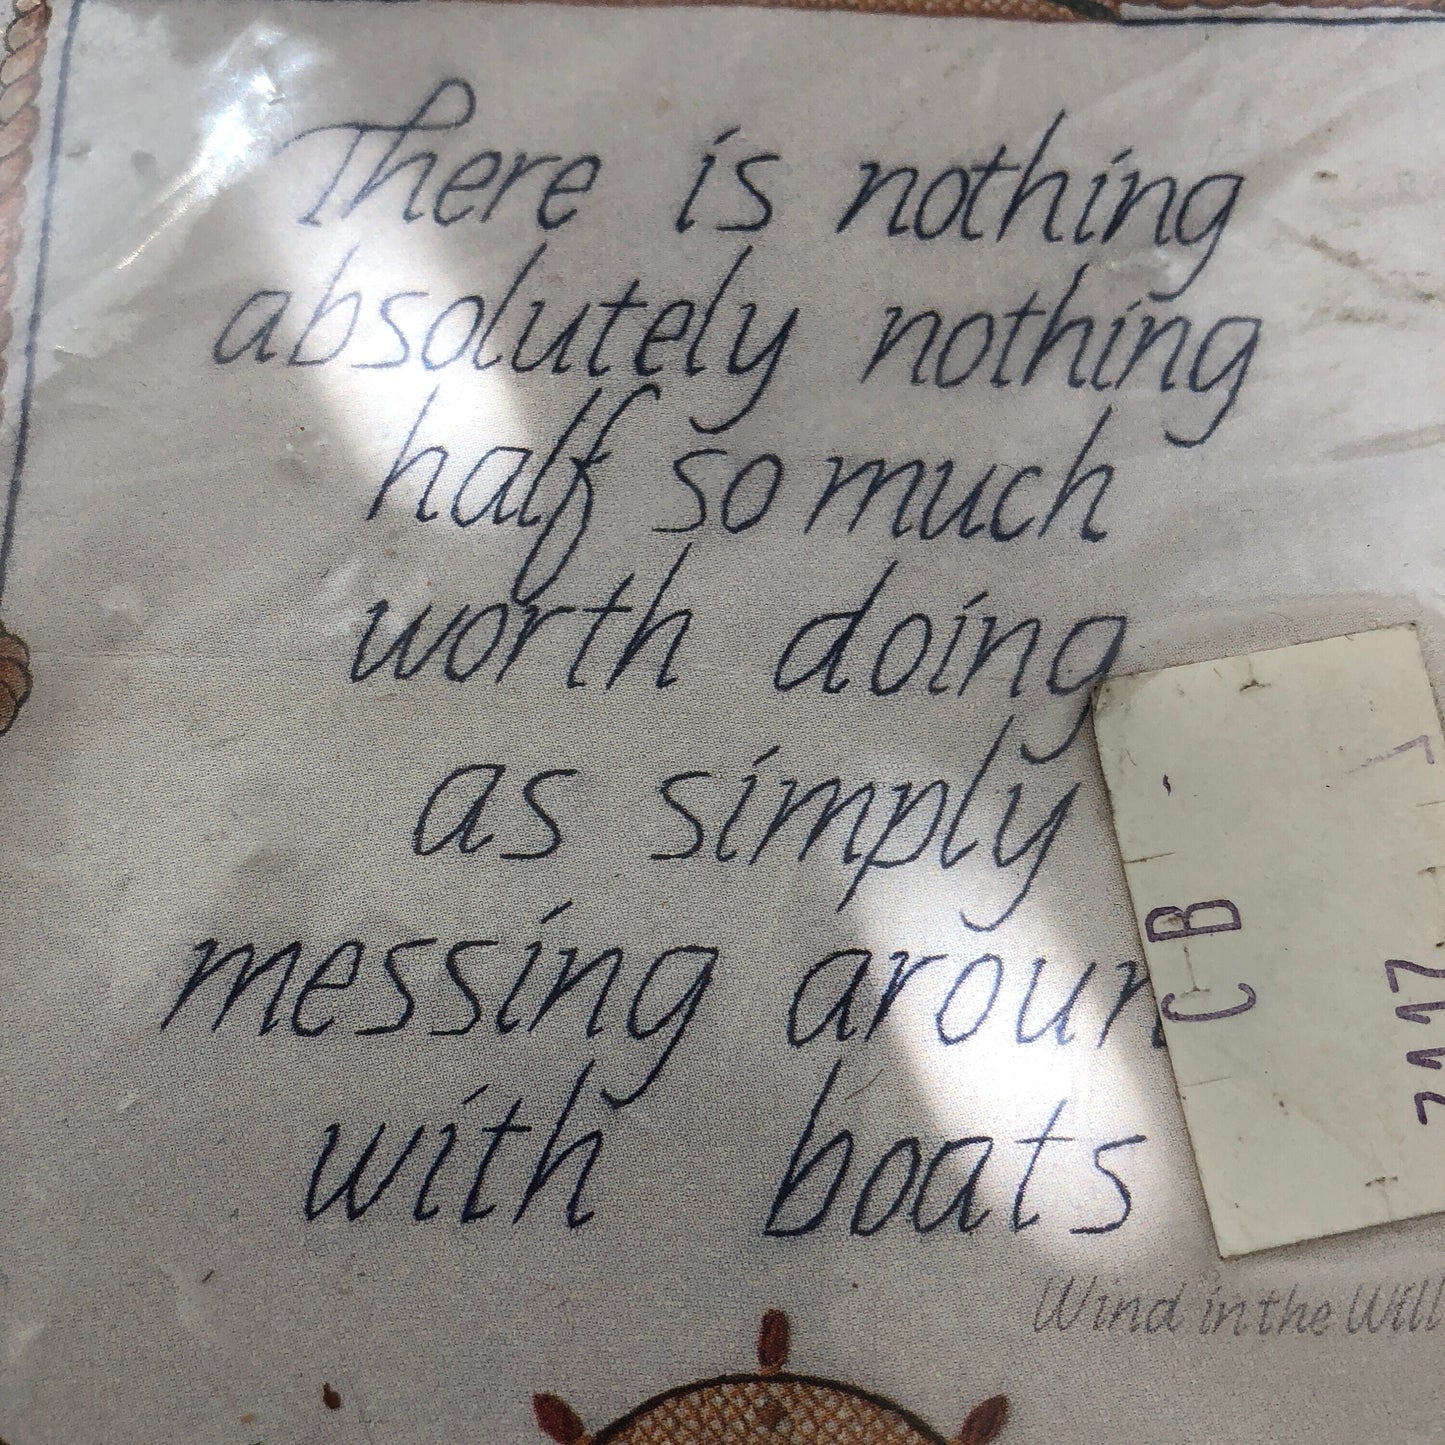 There is nothing
absolutely nothing
half so much
worth doing
as simply
messing aroun
with boats
Wind in the Will
CB